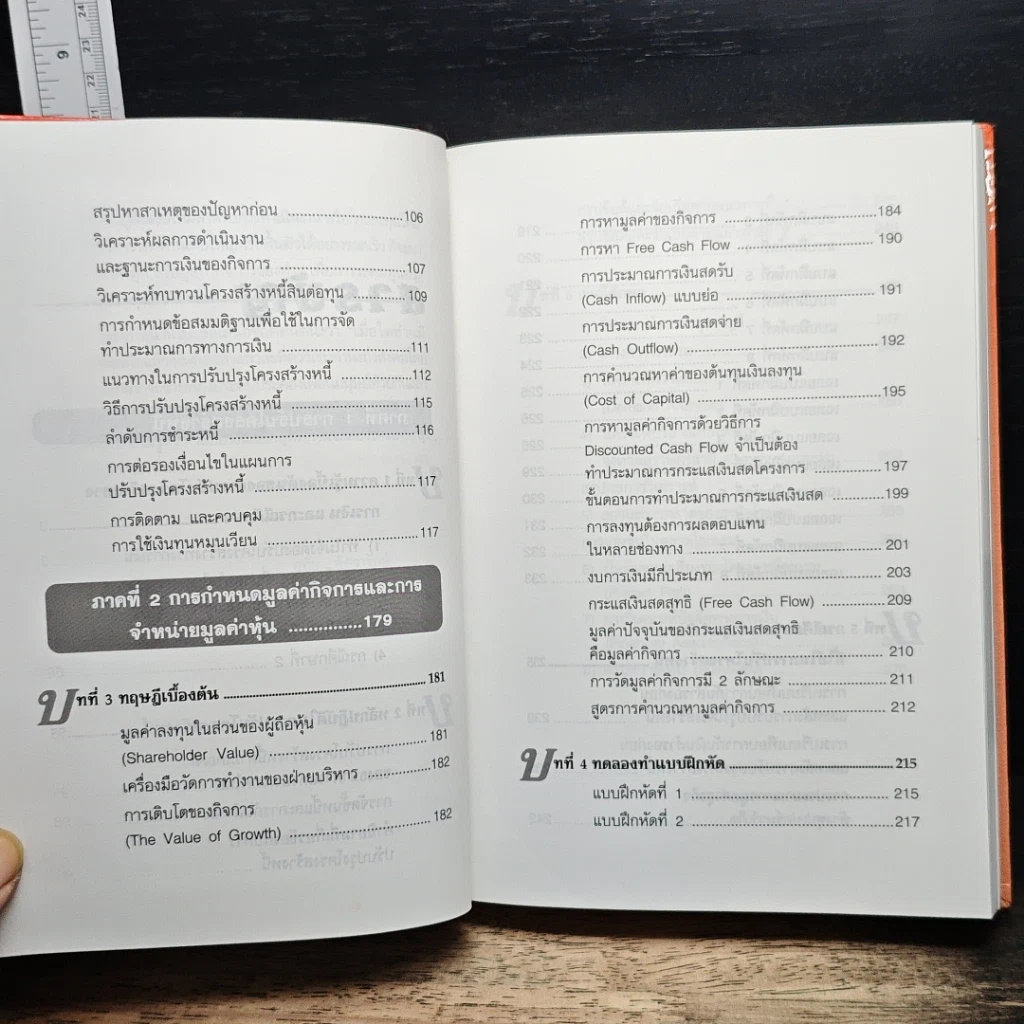 9
24
23
22
21
สรุปหาสาเหตุของปัญหาก่อน ............................106
วิเคราะห์ผลการดำเนินงาน
และฐานะการเงินของกิจการ ............................107
วิเคราะห์ทบทวนโครงสร้างหนี้สินต่อทุน ................109
การกำหนดข้อสมมติฐานเพื่อใช้ในการจัด
ทำประมาณการทางการเงิน ............................111
แนวทางในการปรับปรุงโครงสร้างหนี้ ..................112
วิธีการปรับปรุงโครงสร้างหนี้ ..........................115
ลำดับการชำระหนี้ ....................................116
การต่อรองเงื่อนไขในแผนการ
ปรับปรุงโครงสร้างหนี้ ................................117
การติดตาม และควบคุม
การใช้เงินทุนหมุนเวียน ..............................117
ภาคที่ 2 การกำหนดมูลค่ากิจการและการ
จำหน่ายมูลค่าหุ้น ...............179
บทที่ 3 ทฤษฎีเบื้องต้น ................................181
มูลค่าลงทุนในส่วนของผู้ถือหุ้น
(Shareholder Value) ................................181
เครื่องมือวัดการทำงานของฝ่ายบริหาร ................182
การเติบโตของกิจการ
(The Value of Growth) ..............................182
การหามูลค่าของกิจการ ..............................184
การหา Free Cash Flow ............................ 190
การประมาณการเงินสดรับ
(Cash Inflow) แบบย่อ .............................. 191
การประมาณการเงินสดจ่าย
(Cash Outflow) .................................... 192
การคำนวณหาค่าของต้นทุนเงินลงทุน
(Cost of Capital) ..................................195
การหามูลค่ากิจการด้วยวิธีการ
Discounted Cash Flow จำเป็นต้อง
ทำประมาณการกระแสเงินสดโครงการ ................197
ขั้นตอนการทำประมาณการกระแสเงินสด ..............199
การลงทุนต้องการผลตอบแทน
ในหลายช่องทาง .................................... 201
งบการเงินมีกี่ประเภท ................................ 203
กระแสเงินสดสุทธิ (Free Cash Flow) ................209
มูลค่าปัจจุบันของกระแสเงินสดสุทธิ
คือมูลค่ากิจการ .................................... 210
การวัดมูลค่ากิจการมี 2 ลักษณะ ...................... 211
สูตรการคำนวณหามูลค่ากิจการ ...................... 212
บทที่ 4 ทดลองทำแบบฝึกหัด .......................... 215
แบบฝึกหัดที่ 1 ...................................... 215
แบบฝึกหัดที่ 2 ......................................217